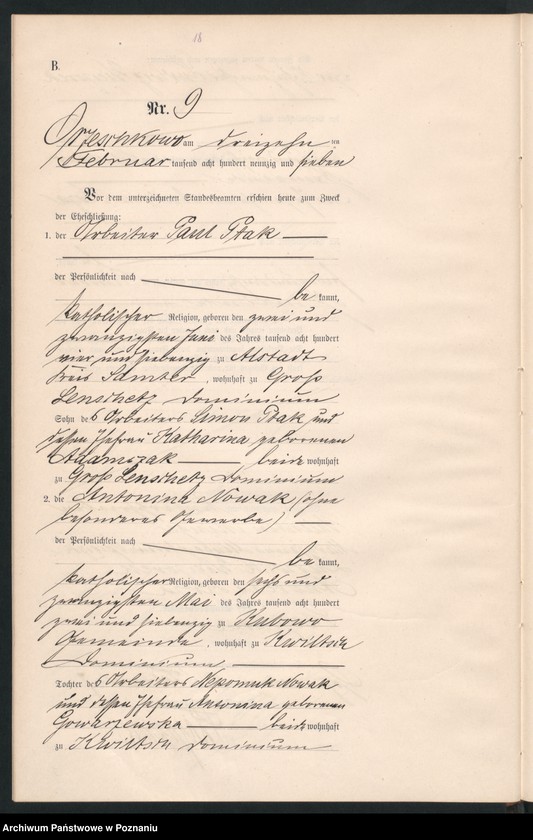 18
B.
Nr. 9
Orzeschkowo am dreizehn ten
Februar tausend acht hundert neunzig und sieben
Vor dem unterzeichneten Standesbeamten erschien heute zum Zweck
der Eheschließung:
1. der Arbeiter Paul Ptak
der Persönlichkeit nach
be kannt,
katholischer Religion, geboren den zwei und
zwanzigsten Juni des Jahres tausend acht hundert
vier und siebenzig zu Alstadt
Kreis Samter, wohnhaft zu Groß
Lenschetz Dominium
Sohn des Arbeiters Simon Ptak und
dessen Ehefrau Katharina geborenen
Adamczak beide wohnhaft
zu Groß Lenschetz Dominium
2. die Antonina Nowak (ohne
besonderes Gewerbe)
der Persönlichkeit nach
be kannt,
katholischer Religion, geboren den sechs und
zwanzigsten Mai des Jahres tausend acht hundert
zwei und siebenzig zu Kubowo
Gemeinde, wohnhaft zu Kwiltsch
Dominium
Tochter des Arbeiters Nepomuk Nowak
und dessen Ehefrau Antonina geborenen
Gowarzewska beide wohnhaft
zu Kwiltsch Dominium
Archiwum Państwowe w Poznaniu